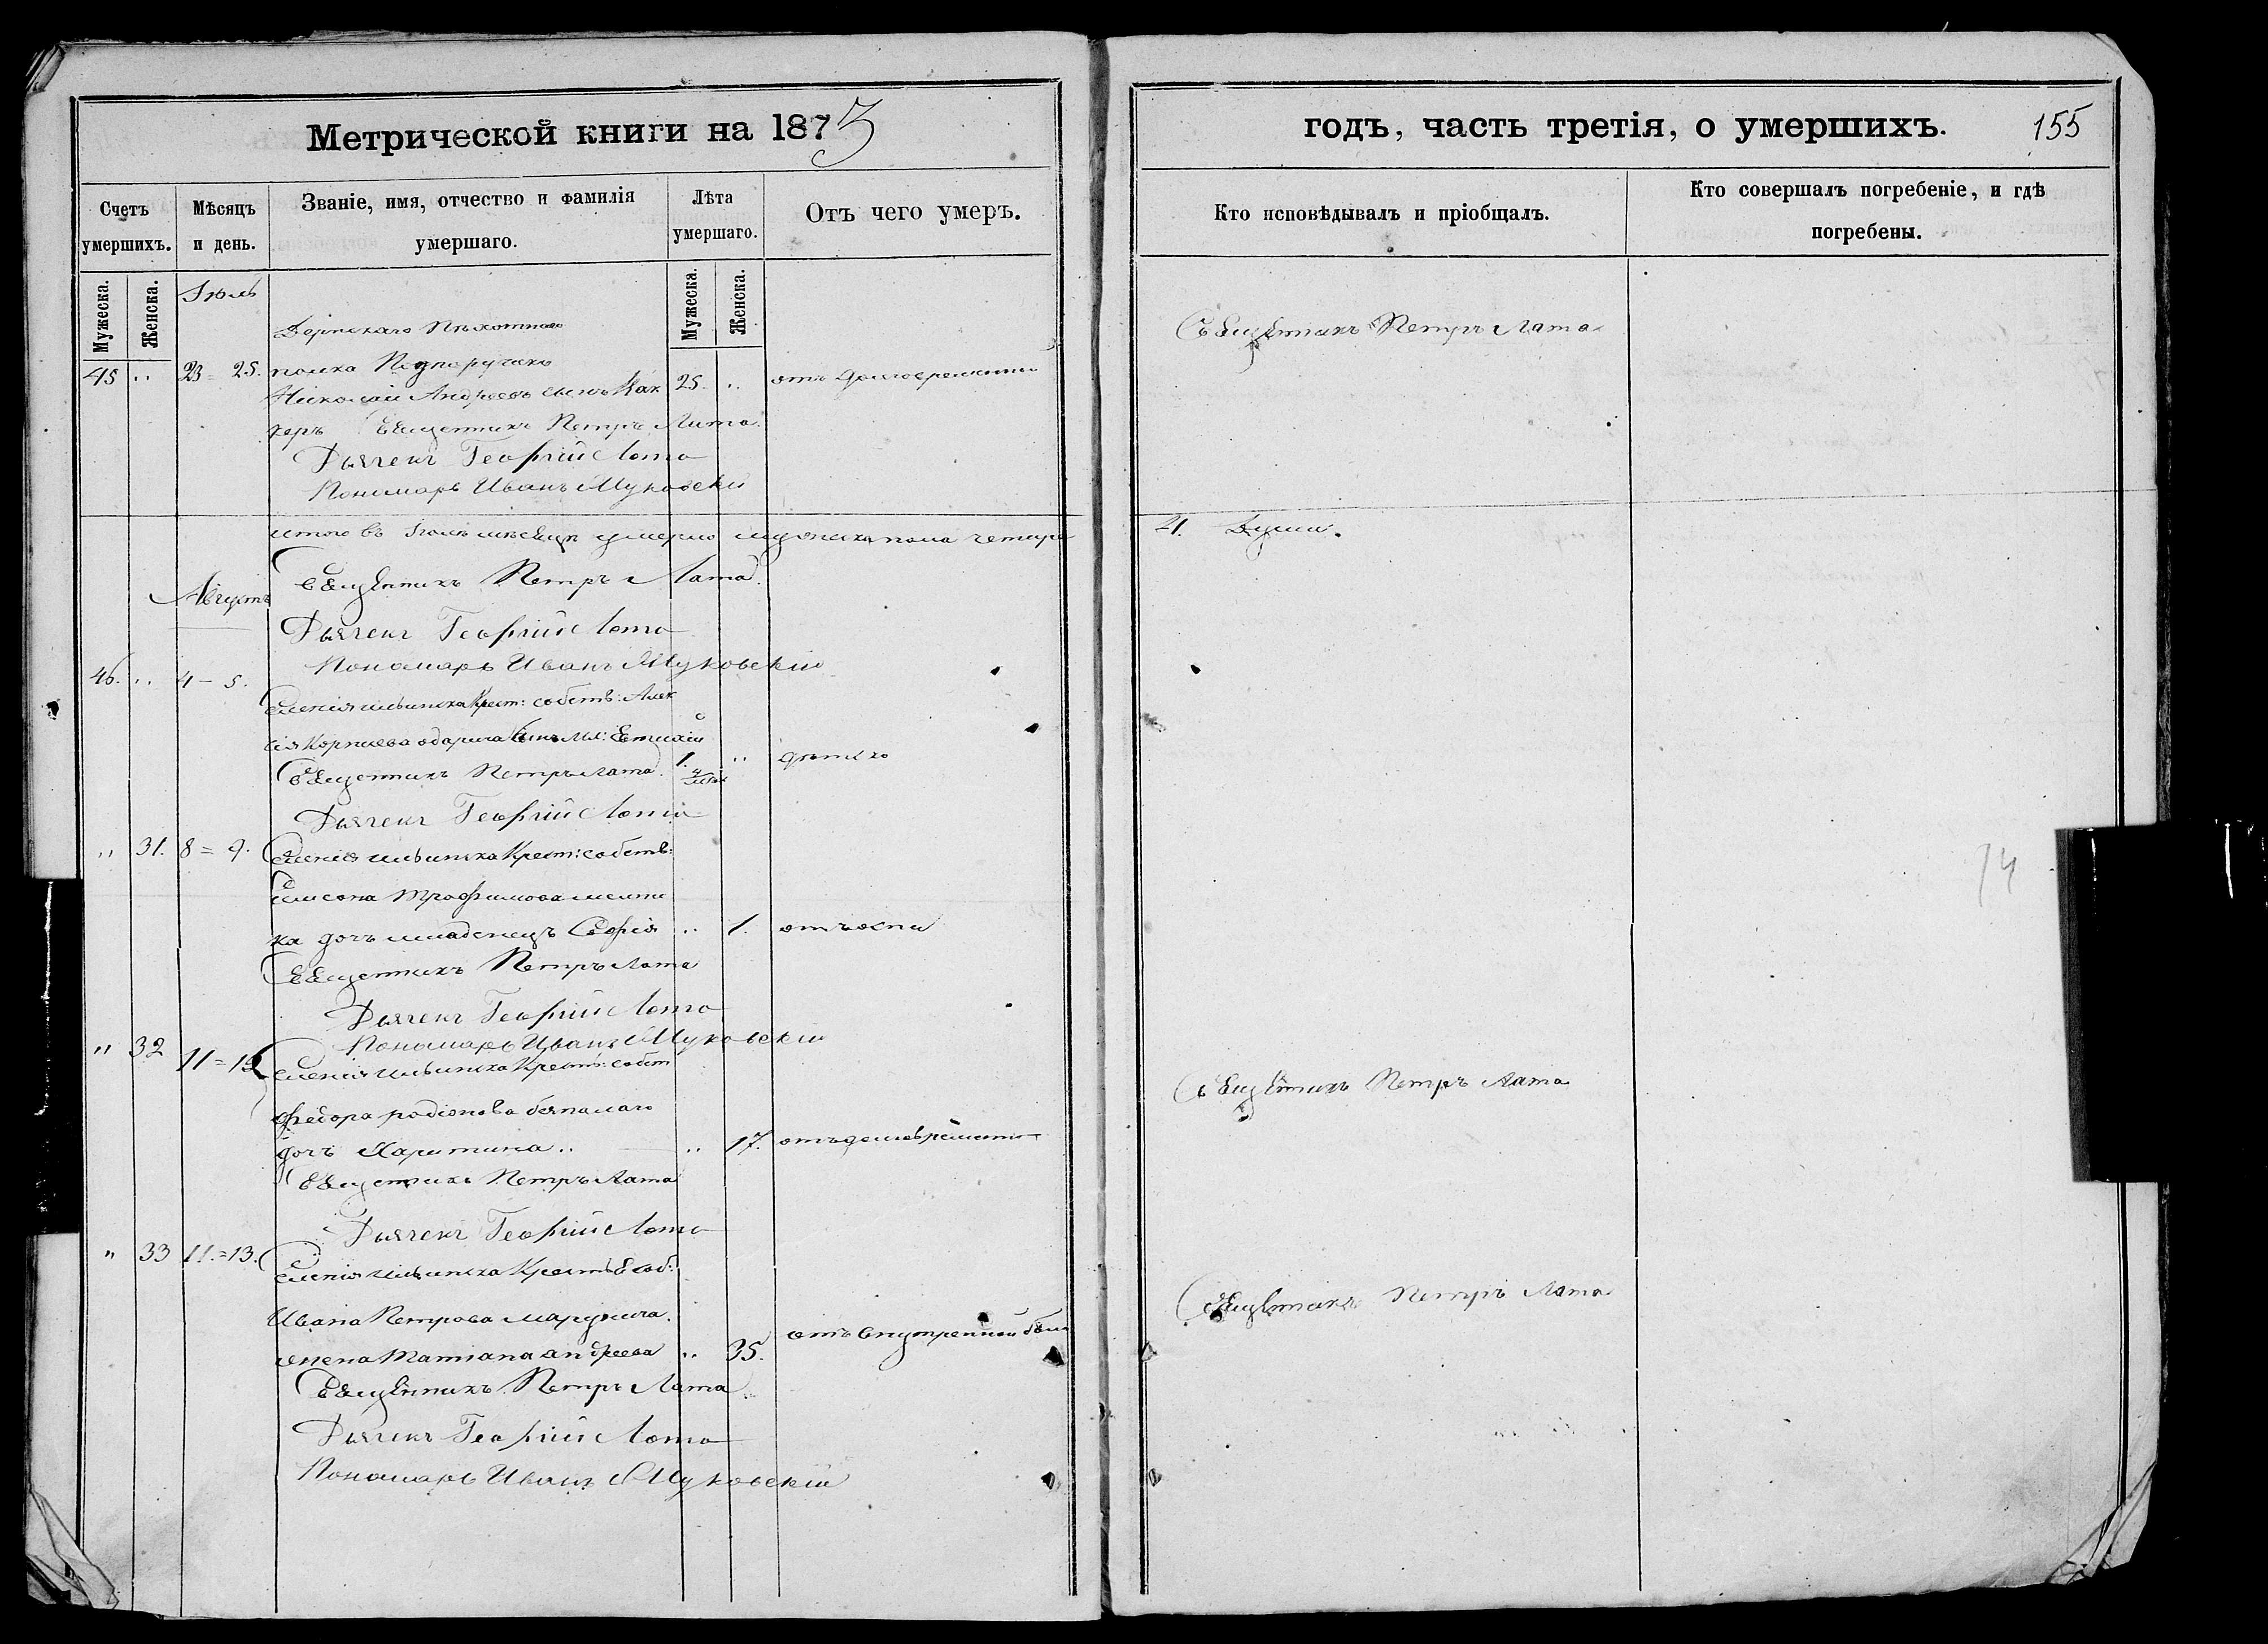 Метрической книги на 1873
годъ, часть третія, о умершихъ. 155
Счетъ умершихъ.
Мѣсяцъ и день.
Званіе, имя, отчество и фамилія умершаго.
Лѣта умершаго.
Отъ чего умеръ.
Кто исповѣдывалъ и пріобщалъ.
Кто совершалъ погребеніе, и гдѣ погребены.
Мужеска.
Женска.
Мужеска.
Женска.
Іюль
пѣхотнаго
45 .. 23 = 25. полка Подпоручикъ
Николай Андреевъ сынъ 25. .. отъ
Священникъ Петръ Лата
Священникъ Петръ Лата
Дьячекъ Георгій Лата
Пономарь Иванъ Жуковскій
итого въ Іюлѣ мѣсяцѣ умерло мужеска пола четыре
4. Души.
Священникъ Петръ Лата
Августъ
Дьячекъ Георгій Лата
Пономарь Иванъ Жуковскій
46. .. 4 - 5.
селенія Ильинска Крест: собств: Алек
сія Корнѣева сынъ мл: Евтихій
Священникъ Петръ Лата 1. ..
Дьячекъ Георгій Лата
.. 31. 8 = 9. селенія Ильинска Крест: собств:
Самсона Трофимова
ка дочь младенецъ Софія .. 1. отъ оспы
Священникъ Петръ Лата
Дьячекъ Георгій Лата
Пономарь Иванъ Жуковскій
.. 32 11 = 13 селенія Ильинска Крест: собст
Федора Родіонова
дочь Харитина .. .. 17.
Священникъ Петръ Лата
Священникъ Петръ Лата
Дьячекъ Георгій Лата
.. 33 11. = 13. селенія Ильинска
Ивана Петрова
жена Татіана Андреева .. 35. отъ внутренной
Священникъ Петръ Лата
Священникъ Петръ Лата
Дьячекъ Георгій Лата
Пономарь Иванъ Жуковскій
74